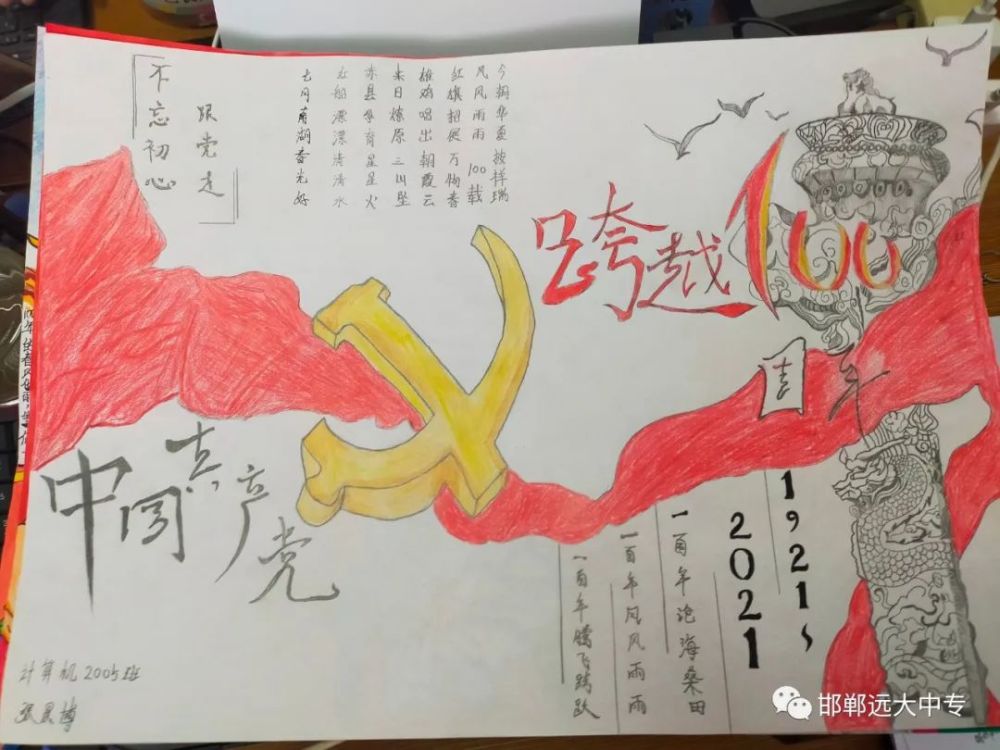 不忘初心
跟党走
七月南湖春光好
红船漂漂清清水
赤县孕育星星火
来日燎原三山坠
雄鸡唱出朝霞云
红旗招展万物春
风风雨雨100载
今朝华夏披祥瑞
跨越100
周年
中国共产党
1921~
2021
一百年沧海桑田
一百年风风雨雨
一百年腾飞跨跃
计算机2005班
邯郸远大中专